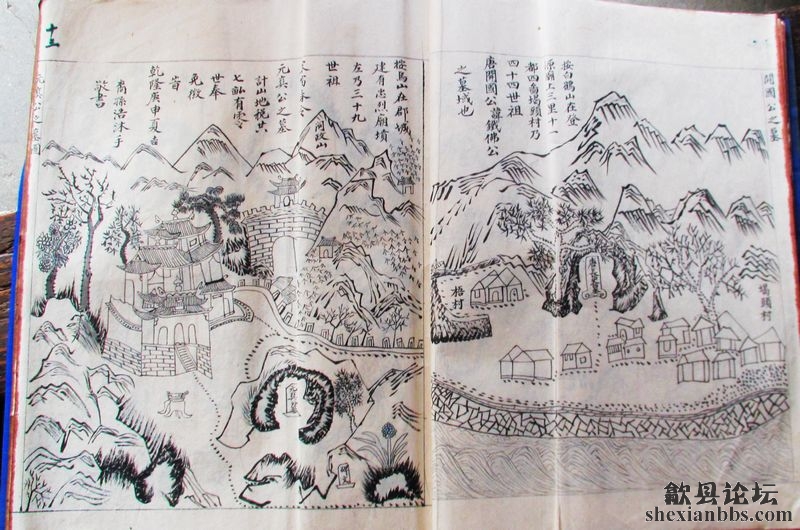 開國公之墓
按白鶴山在登
源嶺上三里十一
都四啚塲頭村乃
四十四世祖
唐開國公諱鐵佛公
之墓域也
梧村
塲頭村
按烏山在郡城
建有忠烈廟墳
左乃三十九
世祖
元真公之墓
計山地税共
七畝有零
世奉
免徴
旨
乾隆庚申夏吉
裔孫浩沐手
敬書
元真公之墓圖
十三
歙县论坛
shexianbbs.com